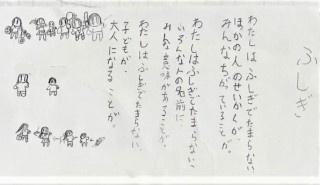 ふしぎ
わたしは、ふしぎでたまらない
ほかの人のせいかくが、
みんなちがっていることが。
わたしはふしぎでたまらない
いろんな人の名前に、
みんな意味があることが、
わたしは、ふしぎでたまらない、
子どもが、
大人になることが。